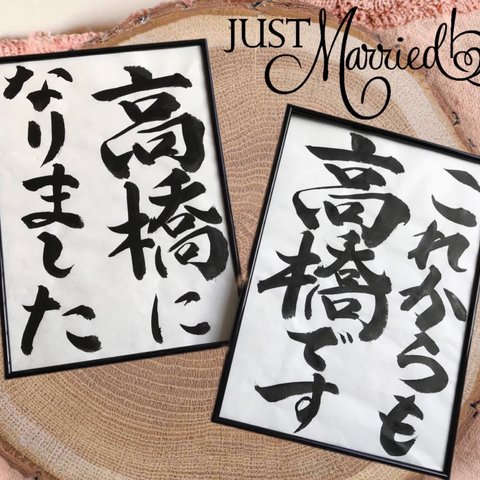 JUST
Married
高橋に
なりました
これからも
高橋です